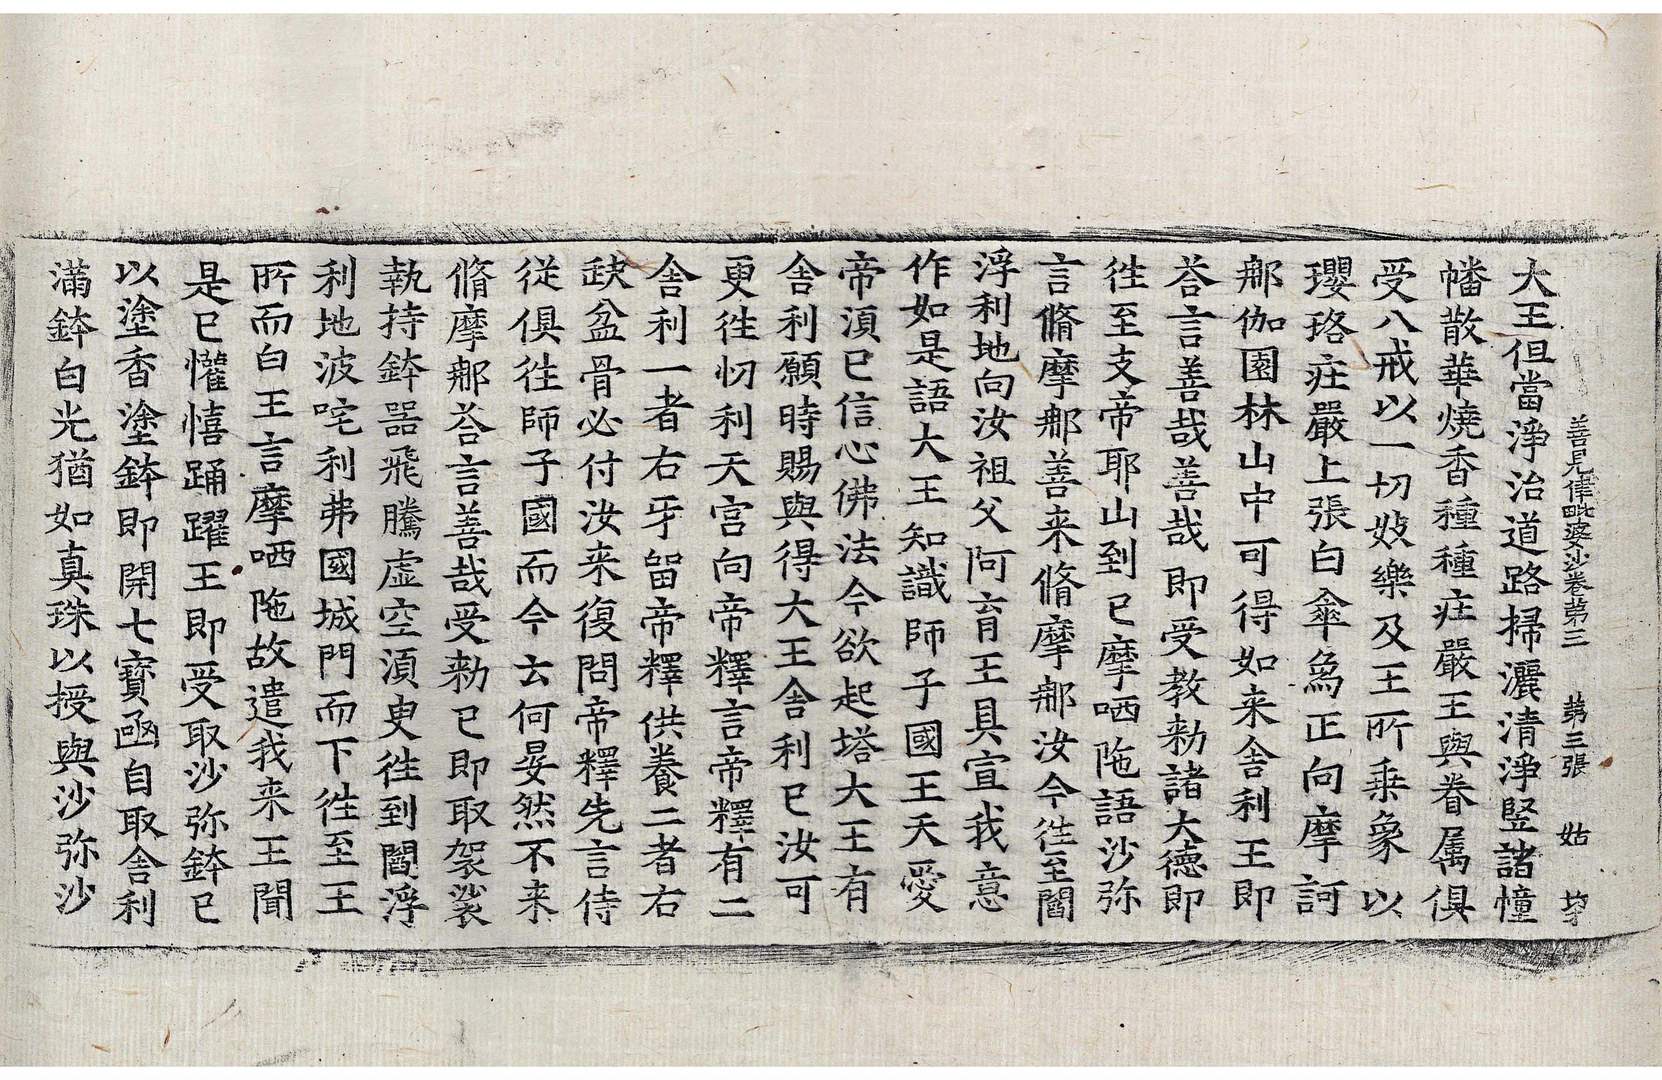 善見律毗婆沙卷第三 第三張 姑
大王但當淨治道路掃灑清淨竪諸幢
幡散華燒香種種㽵嚴王與眷屬俱
受八戒以一切妓樂及王所乗象以
瓔珞㽵嚴上張白傘爲正向摩訶
鄁伽園林山中可得如来舍利王即
荅言善哉善哉即受教勑諸大德即
徃至支帝耶山到已摩哂陁語沙弥
言脩摩鄁善来脩摩鄁汝今徃至閻
浮利地向汝祖父阿育王具宣我意
作如是語大王知識師子國王天愛
帝湏已信心佛法今欲起塔大王有
舍利願時賜與得大王舍利已汝可
更徃忉利天宫向帝釋言帝釋有二
舍利一者右牙留帝釋供養二者右
䟽盆骨必付汝来復問帝釋先言侍
從俱徃師子國而今云何晏然不来
脩摩鄁荅言善哉受勑已即取袈裟
執持鉢器飛騰虛空湏臾徃到閻浮
利地波咤利弗國城門而下徃至王
所而白王言摩哂陁故遣我来王聞
是已懽憘踊躍王即受取沙弥鉢已
以塗香塗鉢即開七寳函自取舍利
滿鉢白光猶如真珠以授與沙弥沙